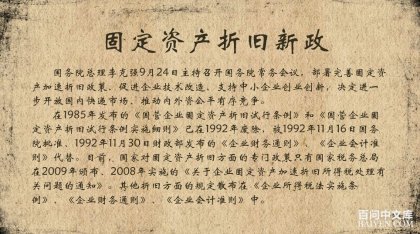 固定资产折旧新政
国务院总理李克强9月24日主持召开国务院常务会议，部署完善固定资
产加速折旧政策、促进企业技术改造、支持中小企业创业创新，决定进一
步开放国内快递市场、推动内外资公平有序竞争。
在1985年发布的《国营企业固定资产折旧试行条例》和《国营企业固
定资产折旧试行条例实施细则》已在1992年废除，被1992年11月16日国务
院批准、1992年11月30日财政部发布的《企业财务通则》、《企业会计准
则》代替。目前，国家对固定资产折旧方面的专门政策只有国家税务总局
在2009年颁布、2008年实施的《关于企业固定资产加速折旧所得税处理有
关问题的通知》。其他折旧方面的规定散布在《企业所得税法实施条
例》、《企业财务通则》、《企业会计准则》中。
百问中文库
HAIVEN.COM